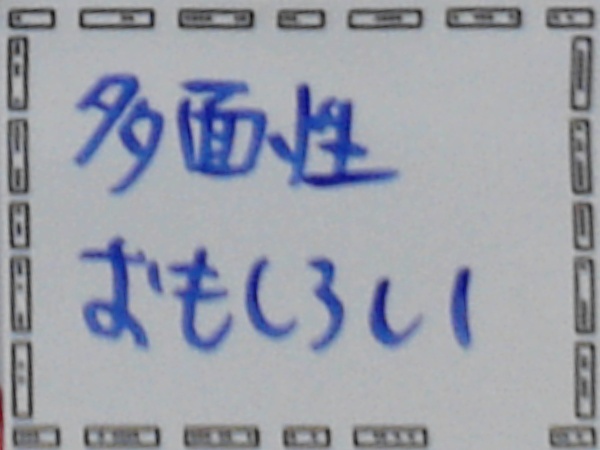 多面性
おもしろい